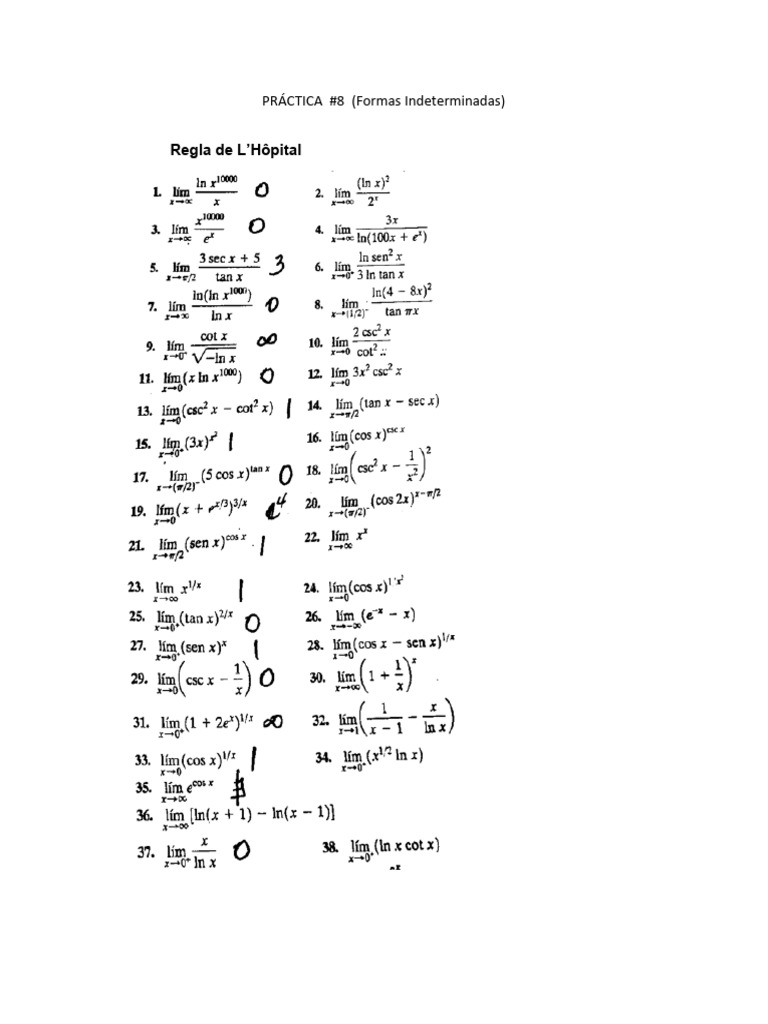 PRÁCTICA #8 (Formas Indeterminadas)
Regla de L'Hôpital
1. lím x→∞ ln x^10000 / x 0
2. lím x→∞ (ln x)^2 / 2^x
3. lím x→∞ x^10000 / e^x 0
4. lím x→∞ 3x / ln(100x + e^x)
5. lím x→π/2 3 sec x + 5 / tan x 3
6. lím x→0⁺ ln sen² x / 3 ln tan x
7. lím x→∞ ln(ln x^1000) / ln x 0
8. lím x→(1/2)⁻ ln(4 − 8x)² / tan πx
9. lím x→0⁺ cot x / √(−ln x) ∞
10. lím x→0 2 csc² x / cot²
11. lím x→0 (x ln x^1000) 0
12. lím x→0 3x² csc² x
13. lím x→0 (csc² x − cot² x) 1
14. lím x→π/2 (tan x − sec x)
15. lím x→0⁺ (3x)^x² 1
16. lím x→0 (cos x)^csc x
17. lím x→(π/2)⁻ (5 cos x)^tan x 0
18. lím x→0 (csc² x − 1/x²)²
19. lím x→0 (x + e^x/3)^3/x e^4
20. lím x→(π/2)⁻ (cos 2x)^x−π/2
21. lím x→π/2 (sen x)^cos x 1
22. lím x→∞ x^x
23. lím x→∞ x^1/x 1
24. lím x→0 (cos x)^1/x²
25. lím x→0⁺ (tan x)^2/x 0
26. lím x→−∞ (e^−x − x)
27. lím x→0⁺ (sen x)^x 1
28. lím x→0 (cos x − sen x)^1/x
29. lím x→0 (csc x − 1/x) 0
30. lím x→∞ (1 + 1/x)^x
31. lím x→0⁺ (1 + 2e^x)^1/x ∞
32. lím x→1 (1/(x − 1) − x/ln x)
33. lím x→0 (cos x)^1/x 1
34. lím x→0⁺ (x^1/2 ln x)
35. lím x→∞ e^cos x
36. lím x→∞ [ln(x + 1) − ln(x − 1)]
37. lím x→0⁺ x / ln x 0
38. lím x→0⁺ (ln x cot x)